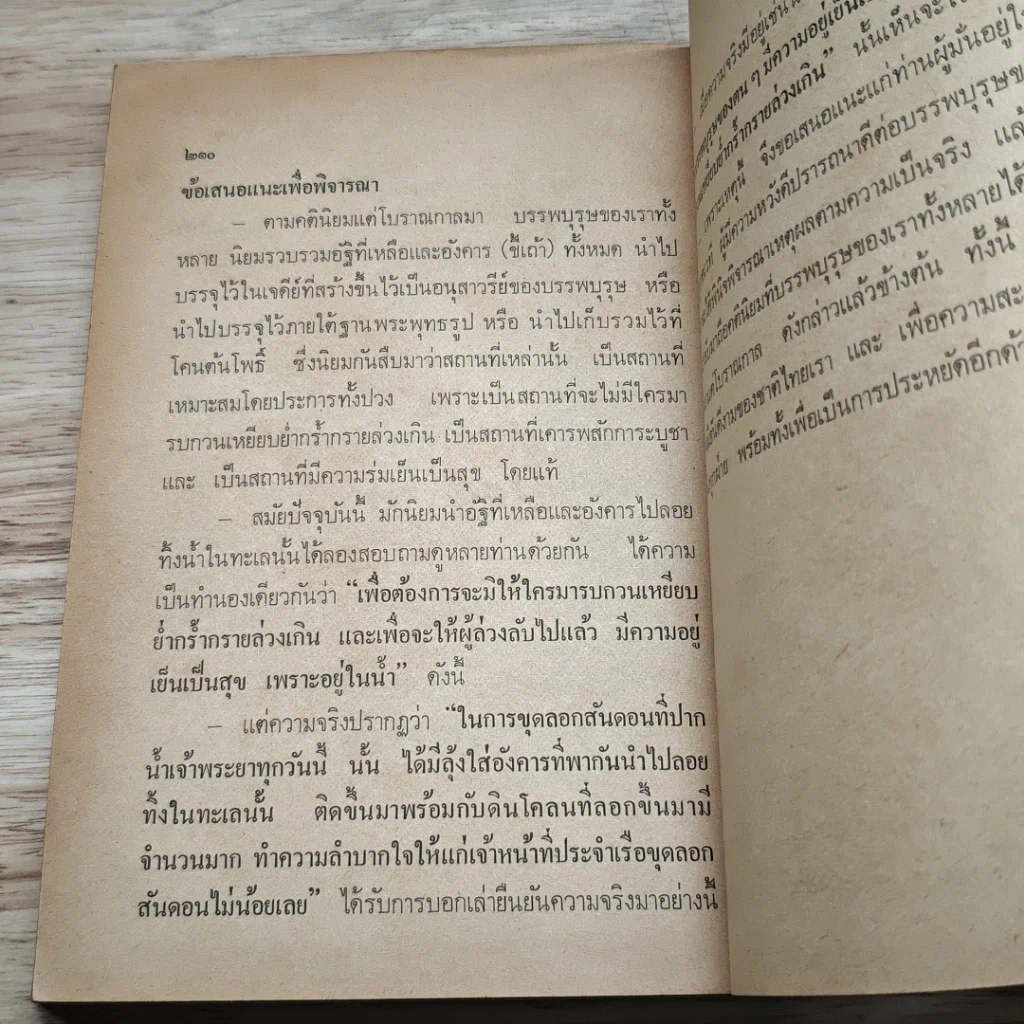 ๒๑๐
ข้อเสนอแนะเพื่อพิจารณา
– ตามคตินิยมแต่โบราณกาลมา บรรพบุรุษของเราทั้ง
หลาย นิยมรวบรวมอัฐิที่เหลือและอังคาร (ขี้เถ้า) ทั้งหมด นำไป
บรรจุไว้ในเจดีย์ที่สร้างขึ้นไว้เป็นอนุสาวรีย์ของบรรพบุรุษ หรือ
นำไปบรรจุไว้ภายใต้ฐานพระพุทธรูป หรือ นำไปเก็บรวมไว้ที่
โคนต้นโพธิ์ ซึ่งนิยมกันสืบมาว่าสถานที่เหล่านั้น เป็นสถานที่
เหมาะสมโดยประการทั้งปวง เพราะเป็นสถานที่จะไม่มีใครมา
รบกวนเหยียบย่ำกร้ำกรายล่วงเกิน เป็นสถานที่เคารพสักการะบูชา
และ เป็นสถานที่มีความร่มเย็นเป็นสุข โดยแท้
– สมัยปัจจุบันนี้ มักนิยมนำอัฐิที่เหลือและอังคารไปลอย
ทิ้งน้ำในทะเลนั้นได้ลองสอบถามดูหลายท่านด้วยกัน ได้ความ
เป็นทำนองเดียวกันว่า “เพื่อต้องการจะมิให้ใครมารบกวนเหยียบ
ย่ำกร้ำกรายล่วงเกิน และเพื่อจะให้ผู้ล่วงลับไปแล้ว มีความอยู่
เย็นเป็นสุข เพราะอยู่ในน้ำ” ดังนี้
– แต่ความจริงปรากฏว่า “ในการขุดลอกสันดอนที่ปาก
น้ำเจ้าพระยาทุกวันนี้ นั้น ได้มีลุ้งใส่อังคารที่พากันนำไปลอย
ทิ้งในทะเลนั้น ติดขึ้นมาพร้อมกับดินโคลนที่ลอกขึ้นมามี
จำนวนมาก ทำความลำบากใจให้แก่เจ้าหน้าที่ประจำเรือขุดลอก
สันดอนไม่น้อยเลย” ได้รับการบอกเล่ายืนยันความจริงมาอย่างนี้
ความจริงมีอยู่เช่น
ของตน ๆ มีความอยู่เย็น
ย่ำกร้ำกรายล่วงเกิน” นั้นเห็นจะ
เพราะเหตุนี้ จึงขอเสนอแนะแก่ท่านผู้มั่นอยู่
ผู้มีความหวังดีปรารถนาดีต่อบรรพบุรุษ
พินิจพิจารณาเหตุผลตามความเป็นจริง
คตินิยมที่บรรพบุรุษของเราทั้งหลายได้
แต่โบราณกาล ดังกล่าวแล้วข้างต้น ทั้งนี้
อันดีงามของชาติไทยเรา และ เพื่อความ
ทุกฝ่าย พร้อมทั้งเพื่อเป็นการประหยัดอีกด้วย